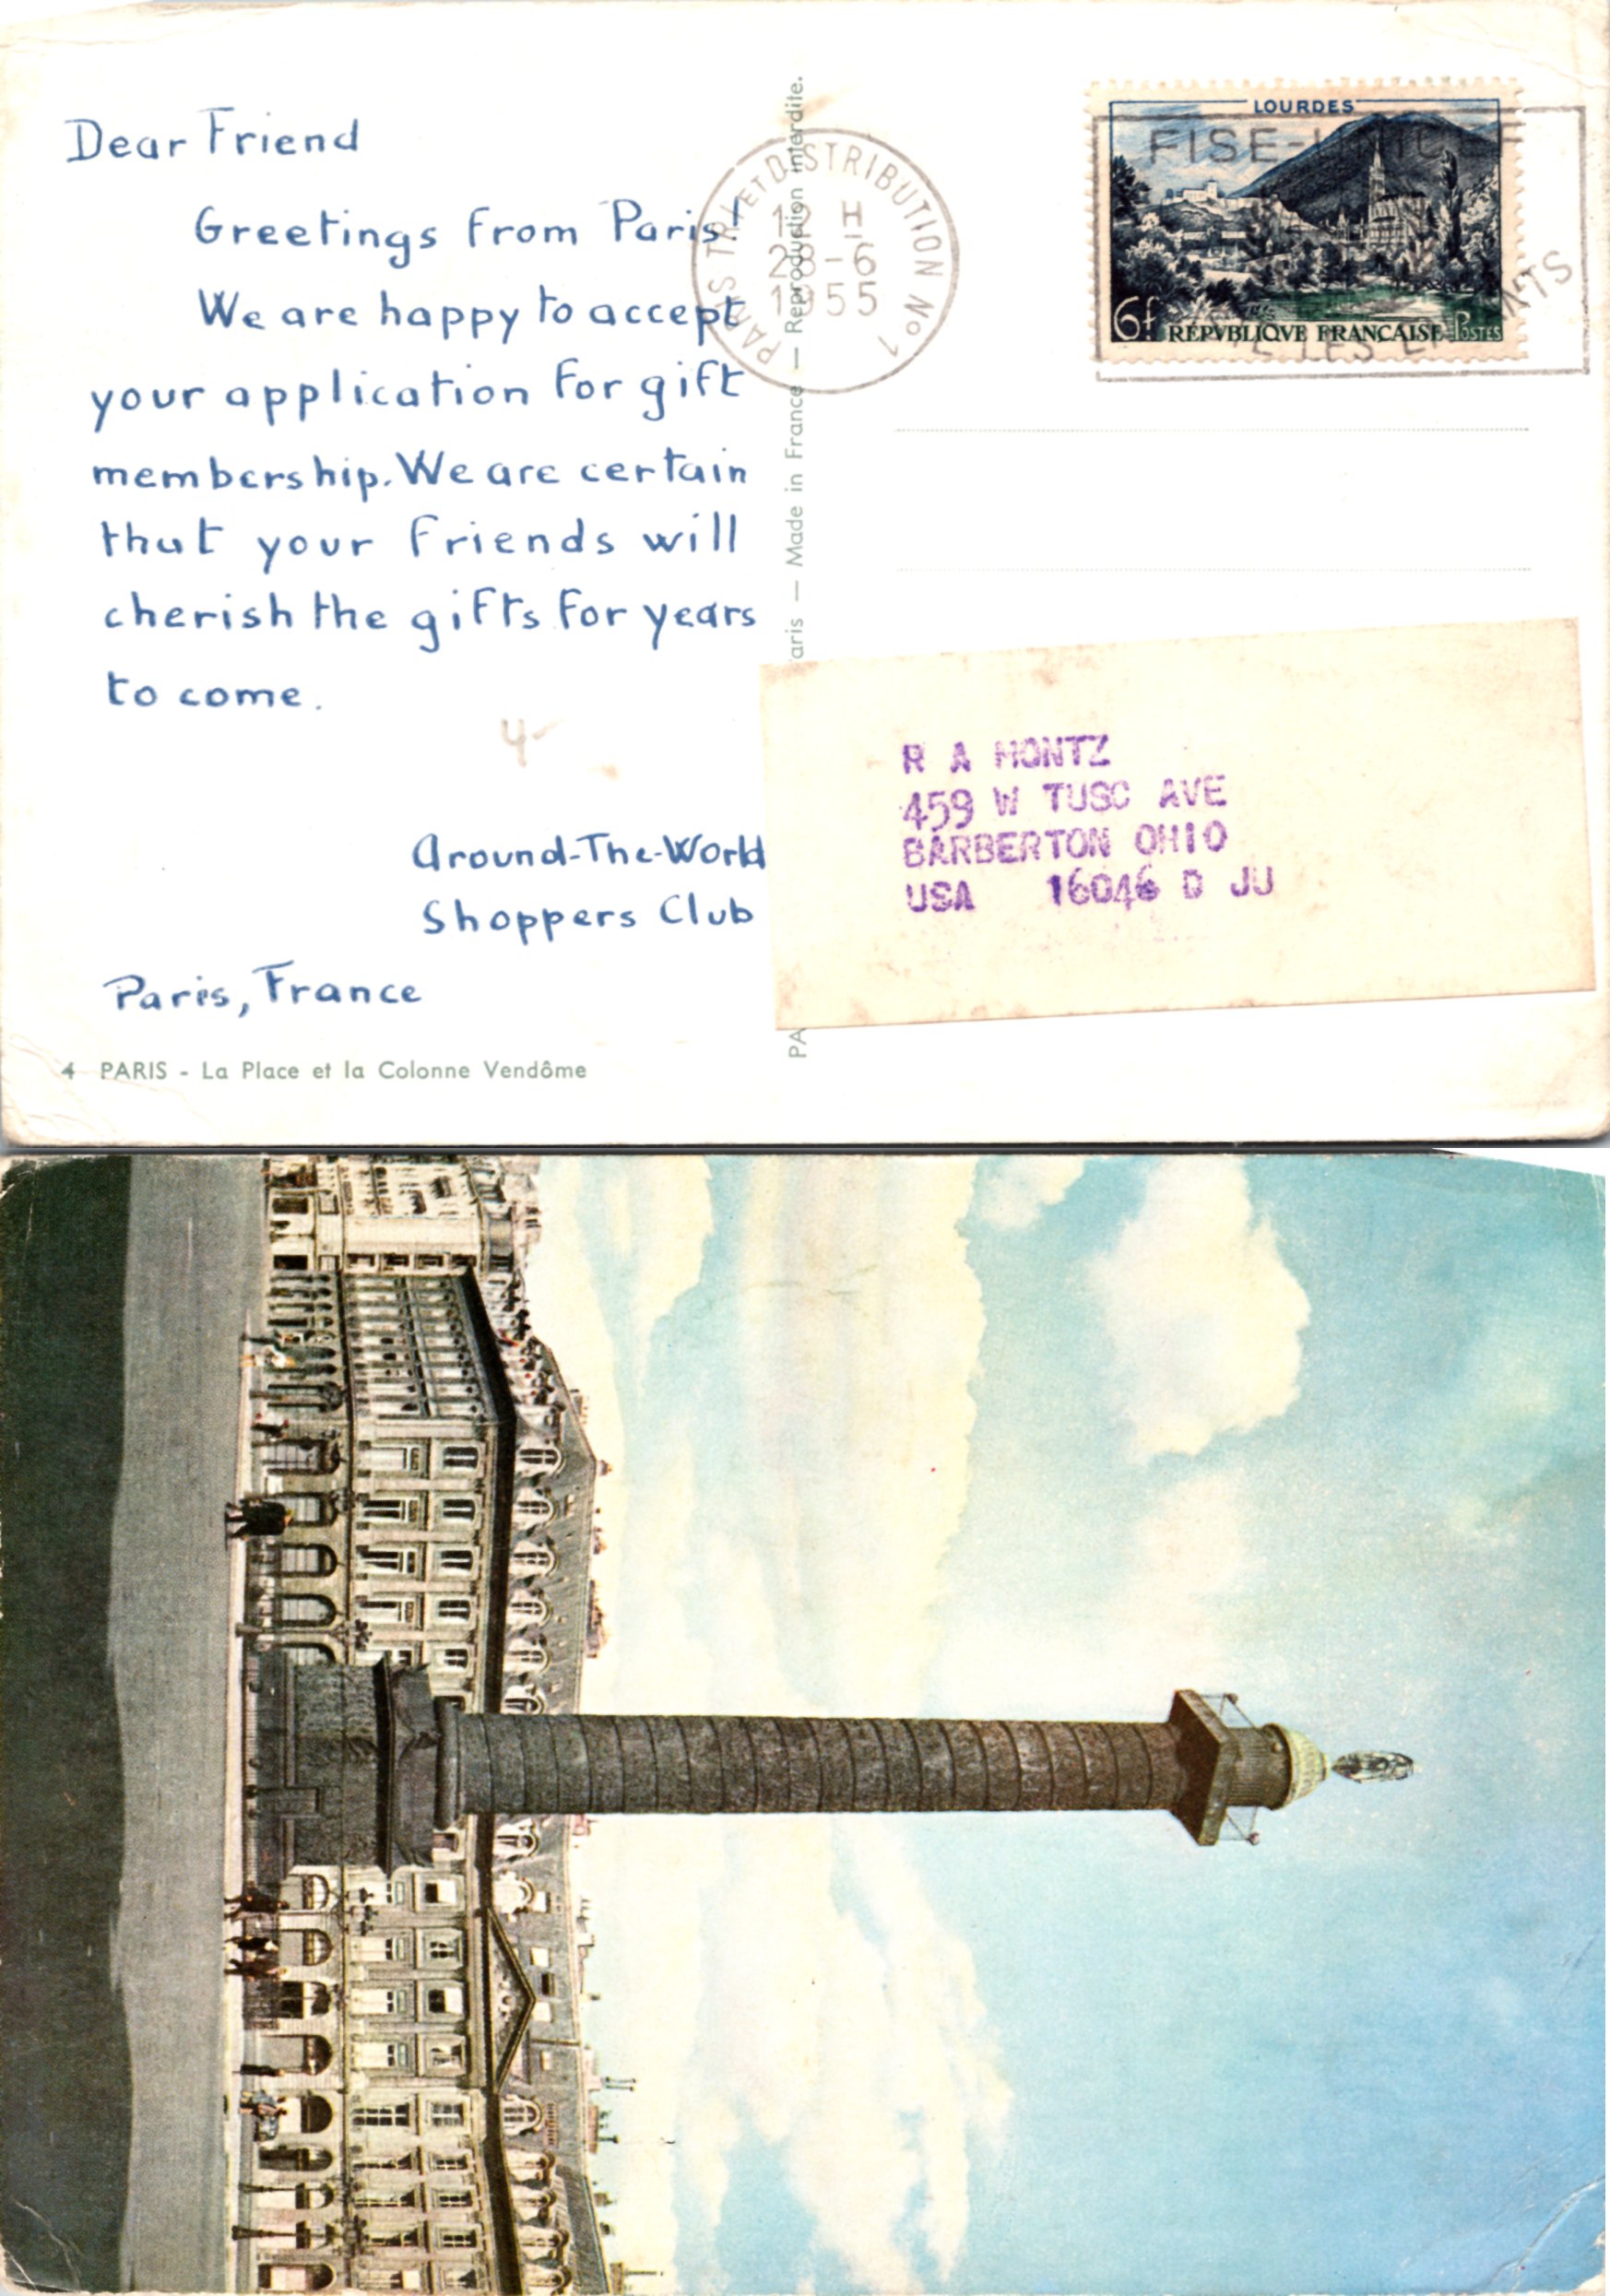 Dear Friend
Greetings from Paris!
We are happy to accept
your application for gift
membership. We are certain
that your friends will
cherish the gifts for years
to come.
4-
Around-The-World
Shoppers Club
Paris, France
4 PARIS - La Place et la Colonne Vendôme
aris — Made in France — Reproduction interdite.
PA
PARIS TRI ET DISTRIBUTION No 1
12 H
28-6
1955
LOURDES
6f RÉPVBLIQVE FRANÇAISE POSTES
FISE-UNICEF
LES
R A MONTZ
459 W TUSC AVE
BARBERTON OHIO
USA 16046 D JU